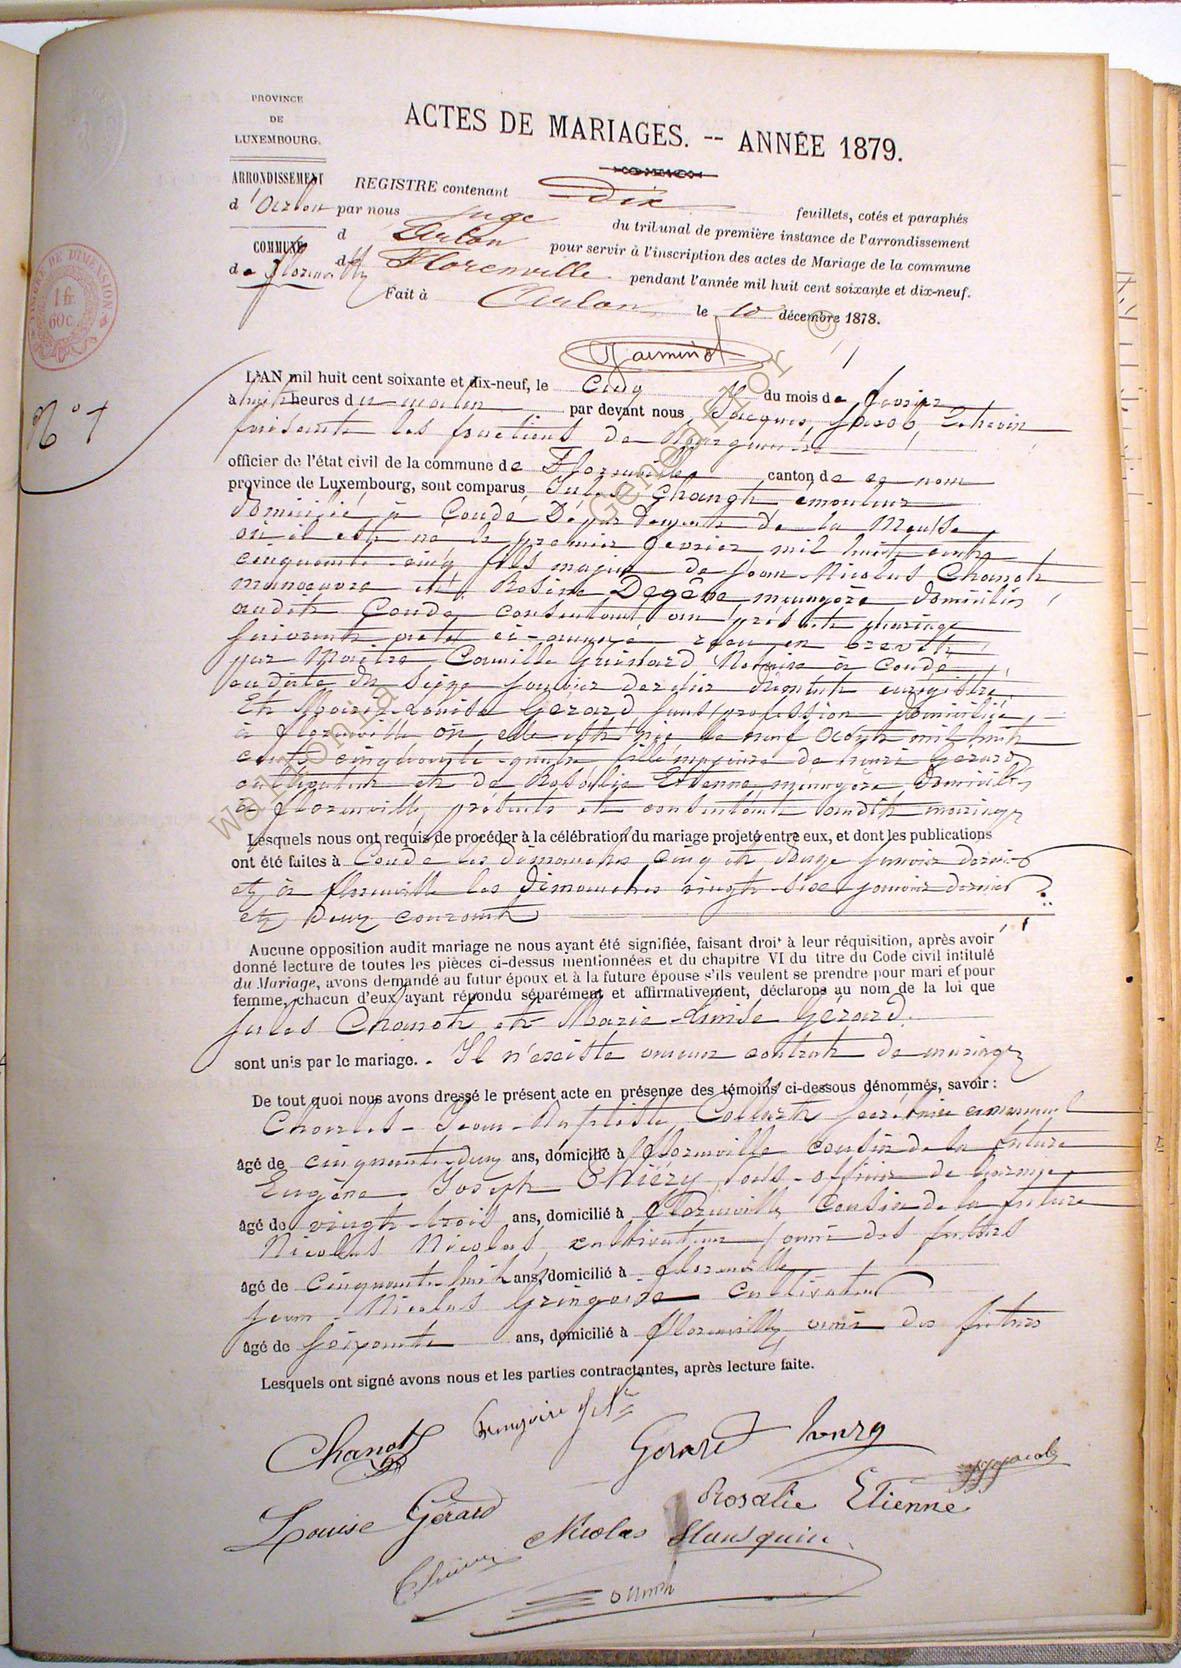 PROVINCE
DE
LUXEMBOURG.
ARRONDISSEMENT
d'Arlon
COMMUNE
de Florenville
TIMBRE DE DIMENSION
1 fr.
60 c.
ACTES DE MARIAGES. -- ANNÉE 1879.
REGISTRE contenant Dix feuillets, cotés et paraphés
par nous Juge du tribunal de première instance de l'arrondissement
d'Arlon pour servir à l'inscription des actes de Mariage de la commune
de Florenville pendant l'année mil huit cent soixante et dix-neuf.
Fait à Arlon le 10 décembre 1878.
N° 1
L'AN mil huit cent soixante et dix-neuf, le Cinq du mois de février
à huit heures du matin par devant nous Jacques Jacob, Echevin
officier de l'état civil de la commune de Florenville canton de ce nom
province de Luxembourg, sont comparus Jules Chanot, émouleur
domicilié à Condé Département de la Meuse,
où il est né le premier février mil huit cent
cinquante-cinq fils majeur de Jean-Nicolas Chanot
manoeuvre et Rosine Degêve ménagère domiciliés
audit Condé consentant au présent mariage
suivant acte ci-annexé reçu en brevet
par Maître Camille Notaire à Condé
en date du seize janvier dernier dûment enregistré
Et Marie-Louise Gérard sans profession domiciliée
à Florenville où elle est née le neuf Août mil huit
cent cinquante-quatre fille majeure de Henri Gérard
cultivateur et de Rosalie Etienne ménagère, domiciliés
à Florenville, présents et consentant audit mariage
Lesquels nous ont requis de procéder à la célébration du mariage projeté entre eux, et dont les publications
ont été faites à Condé les dimanches cinq et douze janvier dernier
et à Florenville les dimanches vingt-six janvier dernier
et deux courant
Aucune opposition audit mariage ne nous ayant été signifiée, faisant droit à leur réquisition, après avoir
donné lecture de toutes les pièces ci-dessus mentionnées et du chapitre VI du titre du Code civil intitulé
du Mariage, avons demandé au futur époux et à la future épouse s'ils veulent se prendre pour mari et pour
femme, chacun d'eux ayant répondu séparément et affirmativement, déclarons au nom de la loi que
Jules Chanot et Marie Louise Gérard
sont unis par le mariage. Il n'existe aucun contrat de mariage
De tout quoi nous avons dressé le présent acte en présence des témoins ci-dessous dénommés, savoir :
Charles-Jean-Baptiste Secrétaire communal
âgé de cinquante-deux ans, domicilié à Florenville cousin de la future
Eugène-Joseph Thiéry sous-officier de
âgé de vingt-trois ans, domicilié à Florenville Cousin de la future
Nicolas Nicolas, cultivateur, ami des futurs
âgé de cinquante-huit ans, domicilié à Florenville
Jean-Nicolas Gringoire Cultivateur
âgé de soixante ans, domicilié à Florenville, ami des futurs
Lesquels ont signé avons nous et les parties contractantes, après lecture faite.
Chanot
Gerard henry
Jacob
Louise Gérard
Rosalie Etienne
Nicolas